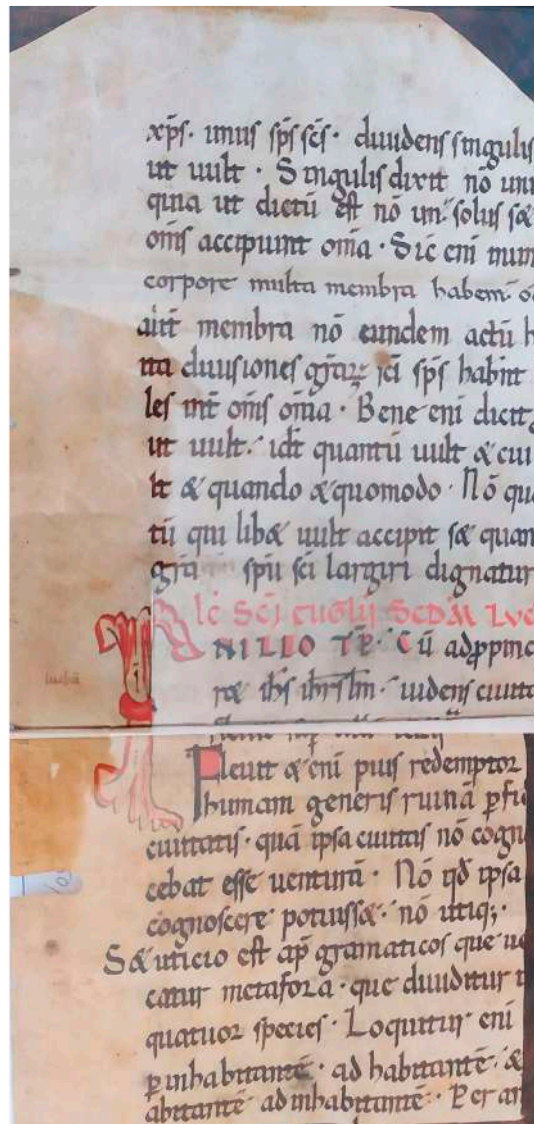 xp̄s · unus sp̄s sc̄s · diuidens singulis
ut uult · Singulis dixit nō uni
quia ut dictū est nō un᷒ solus
om̄s accipiunt om̄ia · Sic eni
corpore multa membra habem᷒
aūt membra nō eundem actū h
ita diuisiones gr̄aꝝ sp̄s habent
les int om̄s om̄ia · Bene eni dicit
ut uult · id ē quantū uult & cui
lt & quando & quomodo · Nō qua
tū qui lib& uult accipit s& quan
gr̄a sp̄u sc̄i largiri dignatur
Lēc Sc̄i euḡlii Secd̄m Luc
IN ILLO T̄P̄R̄ · Cū adp̱pinq
ihs ihrslm · uidens ciuita
Fleuit & eni pius redemptor
humani generis ruinā ꝑfi
ciuitatis · quā ipsa ciuitas nō cogn
cebat esse uenturā · Nō qd̄ ipsa
cognoscere potuiss& · nō utiq;·
S& uticio est ap̄ gramaticos que uo
catur metafora · que diuiditur i
quatuor species · Loquitur eni
ꝑ inhabitantē · ad habitantē · &
abitantē ad inhabitantē · Per an